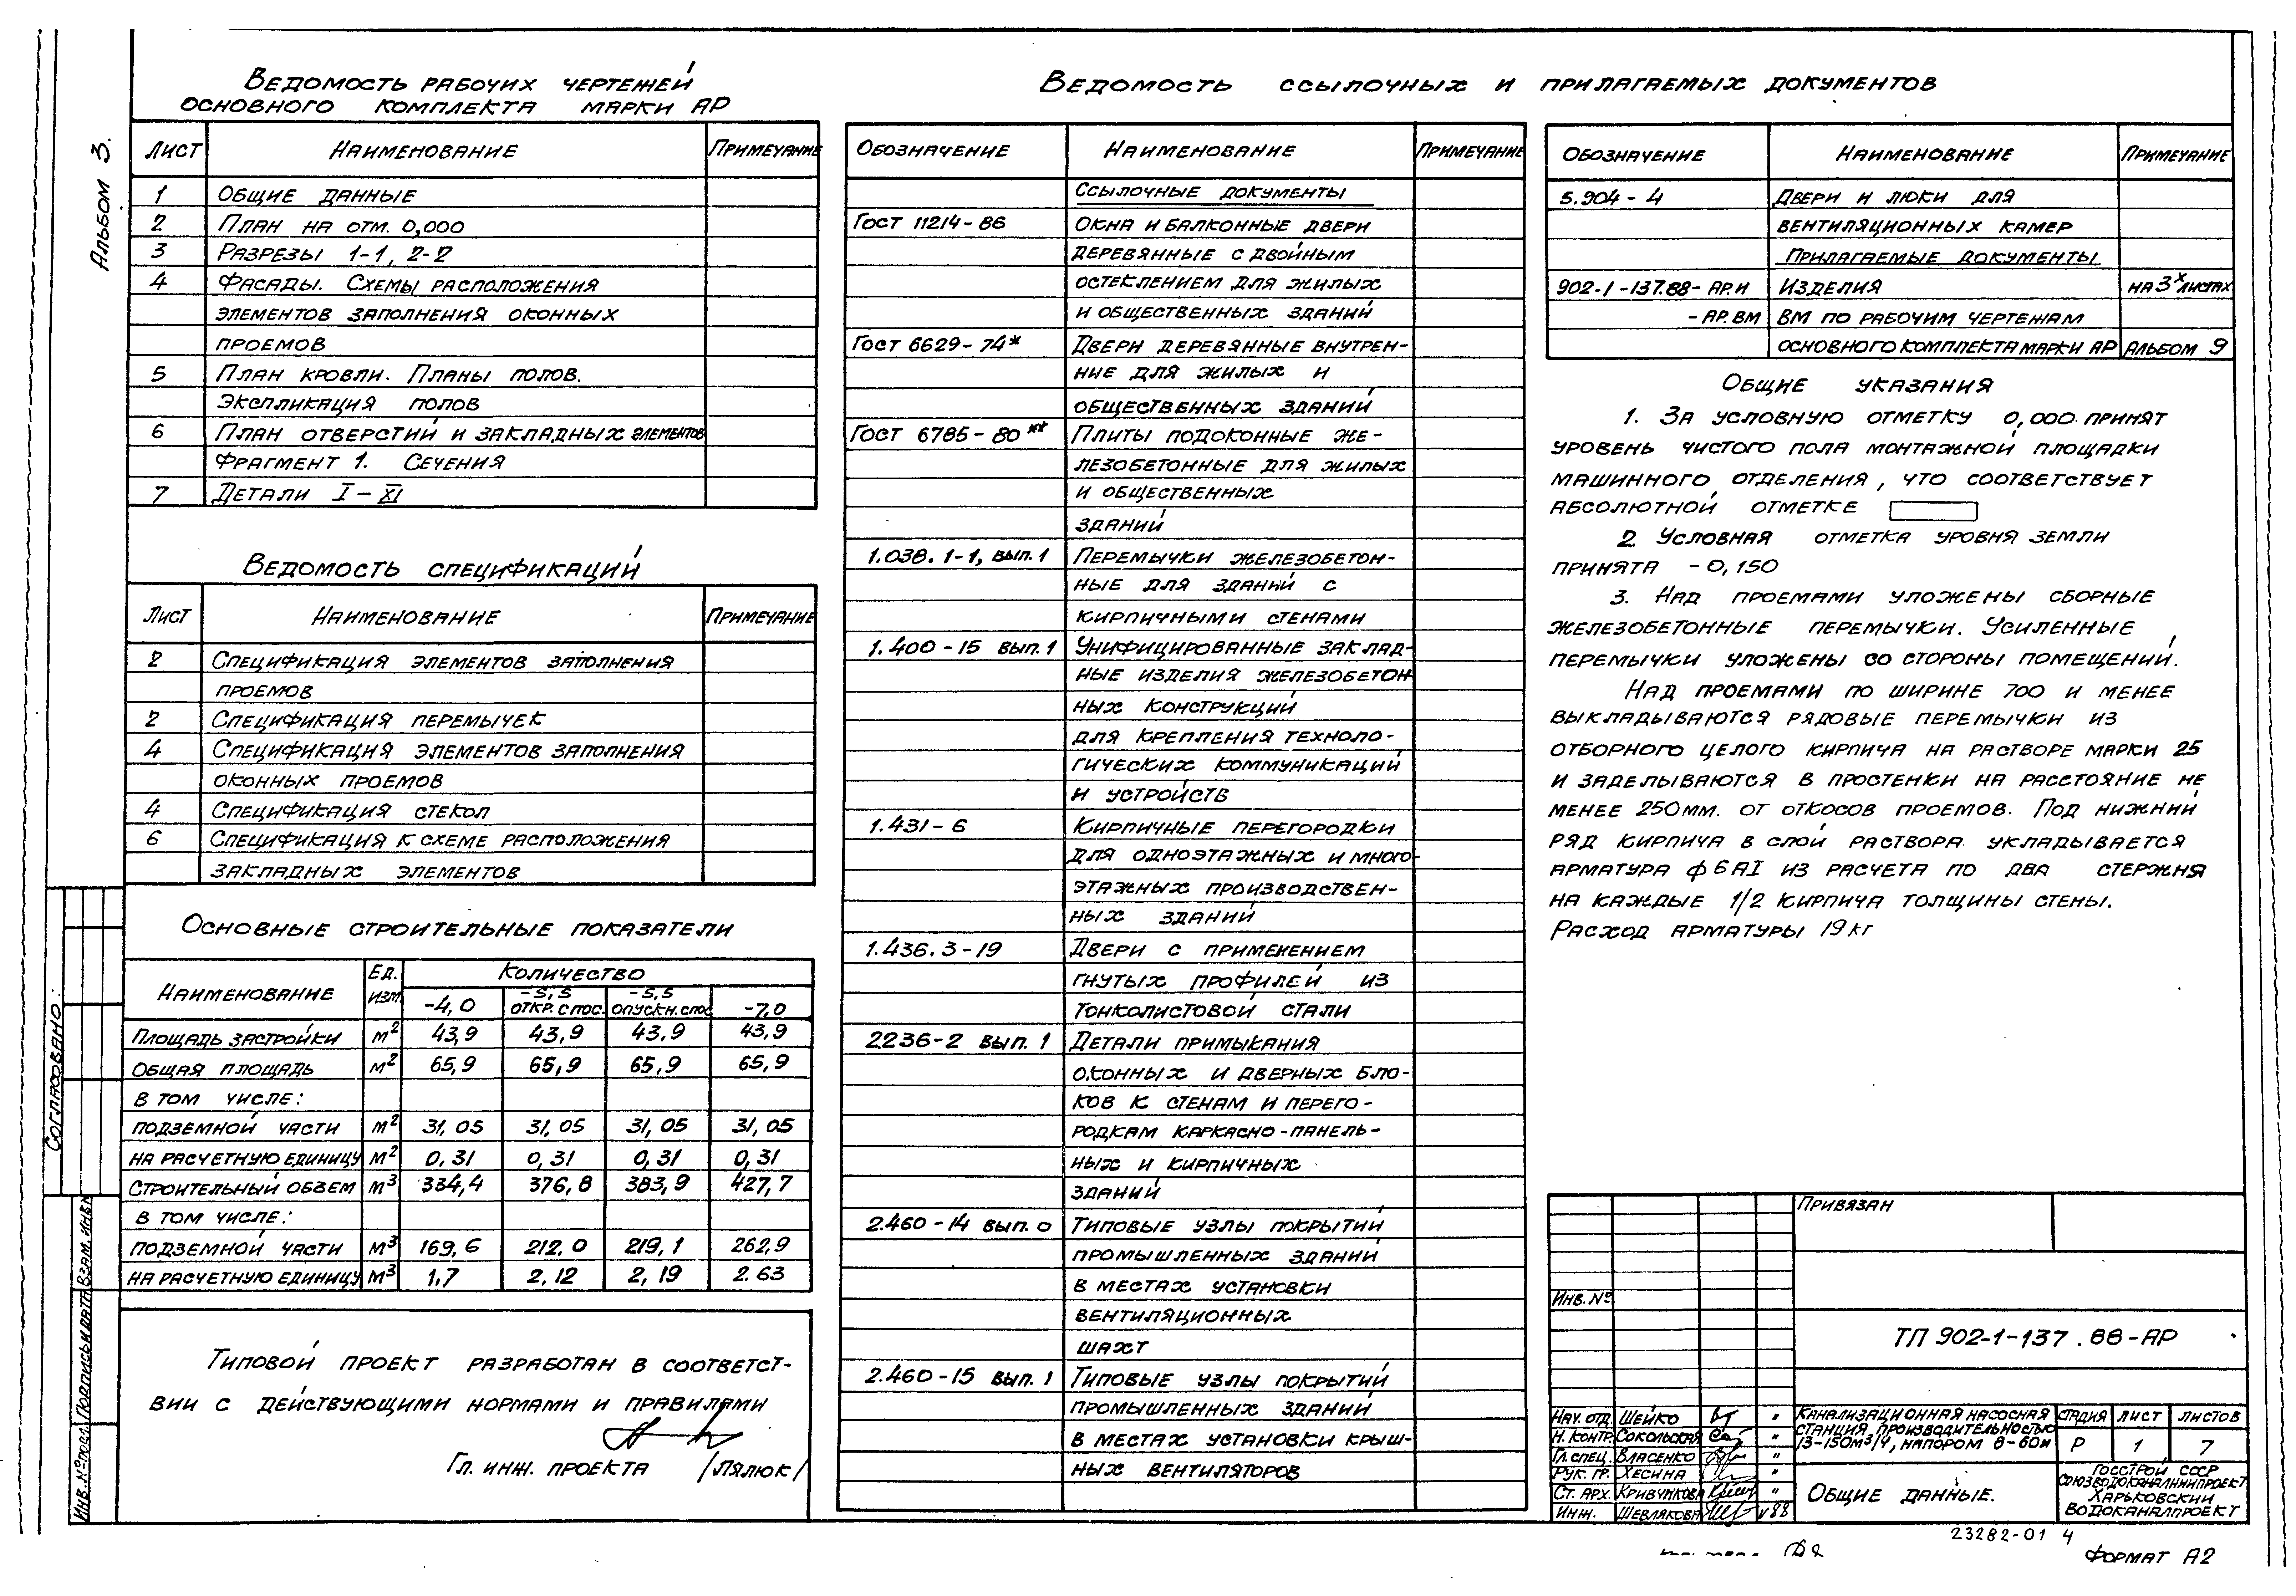 Альбом 3.
Ведомость рабочих чертежей
основного комплекта марки АР
Лист Наименование Примечание
1 Общие данные
2 План на отм. 0,000
3 Разрезы 1-1, 2-2
4 Фасады. Схемы расположения
элементов заполнения оконных
проемов
5 План кровли. Планы полов.
Экспликация полов
6 План отверстий и закладных элементов
Фрагмент 1. Сечения
7 Детали I - XI
Ведомость спецификаций
Лист Наименование Примечание
2 Спецификация элементов заполнения
проемов
2 Спецификация перемычек
4 Спецификация элементов заполнения
оконных проемов
4 Спецификация стекол
6 Спецификация к схеме расположения
закладных элементов
Основные строительные показатели
Наименование Ед. изм. Количество
-4,0 -5,5 откр. спос. -5,5 опускн. спос -7,0
Площадь застройки м² 43,9 43,9 43,9 43,9
Общая площадь м² 65,9 65,9 65,9 65,9
в том числе:
подземной части м² 31,05 31,05 31,05 31,05
на расчетную единицу м² 0,31 0,31 0,31 0,31
Строительный объем м³ 334,4 376,8 383,9 427,7
в том числе:
подземной части м³ 169,6 212,0 219,1 262,9
на расчетную единицу м³ 1,7 2,12 2,19 2.63
Типовой проект разработан в соответст-
вии с действующими нормами и правилами
Гл. инж. проекта /Лялюк/
Ведомость ссылочных и прилагаемых документов
Обозначение Наименование Примечание
Ссылочные документы
Гост 11214-86 Окна и балконные двери
деревянные с двойным
остеклением для жилых
и общественных зданий
Гост 6629-74* Двери деревянные внутрен-
ние для жилых и
общественных зданий
Гост 6785-80** Плиты подоконные же-
лезобетонные для жилых
и общественных
зданий
1.038.1-1, вып. 1 Перемычки железобетон-
ные для зданий с
кирпичными стенами
1.400-15 вып. 1 Унифицированные заклад-
ные изделия железобетон
ных конструкций
для крепления техноло-
гических коммуникаций
и устройств
1.431-6 Кирпичные перегородки
для одноэтажных и много-
этажных производствен-
ных зданий
1.436.3-19 Двери с применением
гнутых профилей из
тонколистовой стали
2236-2 вып. 1 Детали примыкания
оконных и дверных бло-
ков к стенам и перего-
родкам каркасно-панель-
ных и кирпичных
зданий
2.460-14 вып. 0 Типовые узлы покрытий
промышленных зданий
в местах установки
вентиляционных
шахт
2.460-15 вып. 1 Типовые узлы покрытий
промышленных зданий
в местах установки крыш-
ных вентиляторов
Обозначение Наименование Примечание
5.904-4 Двери и люки для
вентиляционных камер
Прилагаемые документы
902-1-137.88-АР.И Изделия на 3х листах
-АР.ВМ ВМ по рабочим чертежам
основного комплекта марки АР Альбом 9
Общие указания
1. За условную отметку 0,000 принят
уровень чистого пола монтажной площадки
машинного отделения, что соответствует
абсолютной отметке
2 Условная отметка уровня земли
принята -0,150
3. Над проемами уложены сборные
железобетонные перемычки. Усиленные
перемычки уложены со стороны помещений.
Над проемами по ширине 700 и менее
выкладываются рядовые перемычки из
отборного целого кирпича на растворе марки 25
и заделываются в простенки на расстояние не
менее 250мм. от откосов проемов. Под нижний
ряд кирпича в слой раствора укладывается
арматура ф 6 АI из расчета по два стержня
на каждые 1/2 кирпича толщины стены.
Расход арматуры 19 кг
Согласовано:
Инв. № подл. Подпись и дата Взам. инв №
Привязан
Инв. №
ТП 902-1-137.88-АР
Нач. отд. Шейко "
Н. контр. Сокольская "
Гл. спец. Власенко "
Рук. гр. Хесина "
Ст. арх. Кривчикова "
Инж. Шевлякова V 88
Канализационная насосная
станция производительностью
13-150м³/ч, напором 8-60м
Стадия Лист Листов
Р 1 7
Общие данные.
Госстрой СССР
Союзводоканалниипроект
Харьковский
Водоканалпроект
23282-01 4
Формат А2